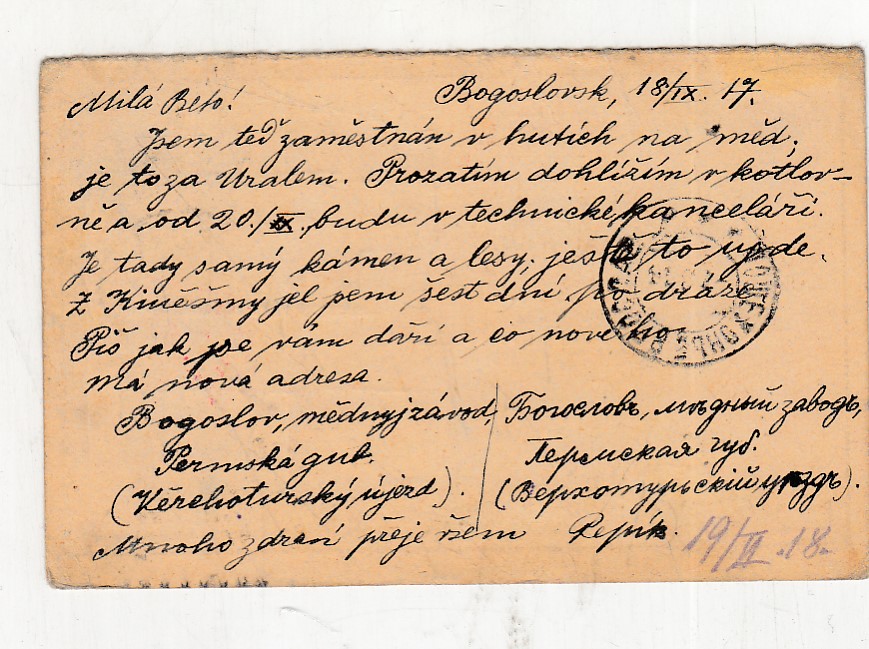 Milá Béťo! Bogoslovsk, 18/IX. 17.
Jsem teď zaměstnán v hutích na měd,
je to za Uralem. Prozatím dohlížím v kotlov-
ně a od 20./IX. budu v technické kanceláři.
Je tady samý kámen a lesy, ještě to ujde.
Z Kiněšmy jel jsem šest dní po dráze.
Piš jak se vám daří a co nového.
Má nová adresa.
Bogoslov, mědnyj závod, Богословъ, мѣдный заводъ,
Permská gub. Пермская губ.
(Vĕrchoturský újezd). (Верхотурьскій уѣздъ).
Mnoho zdraví přeje všem Pepík.
19/II.18.